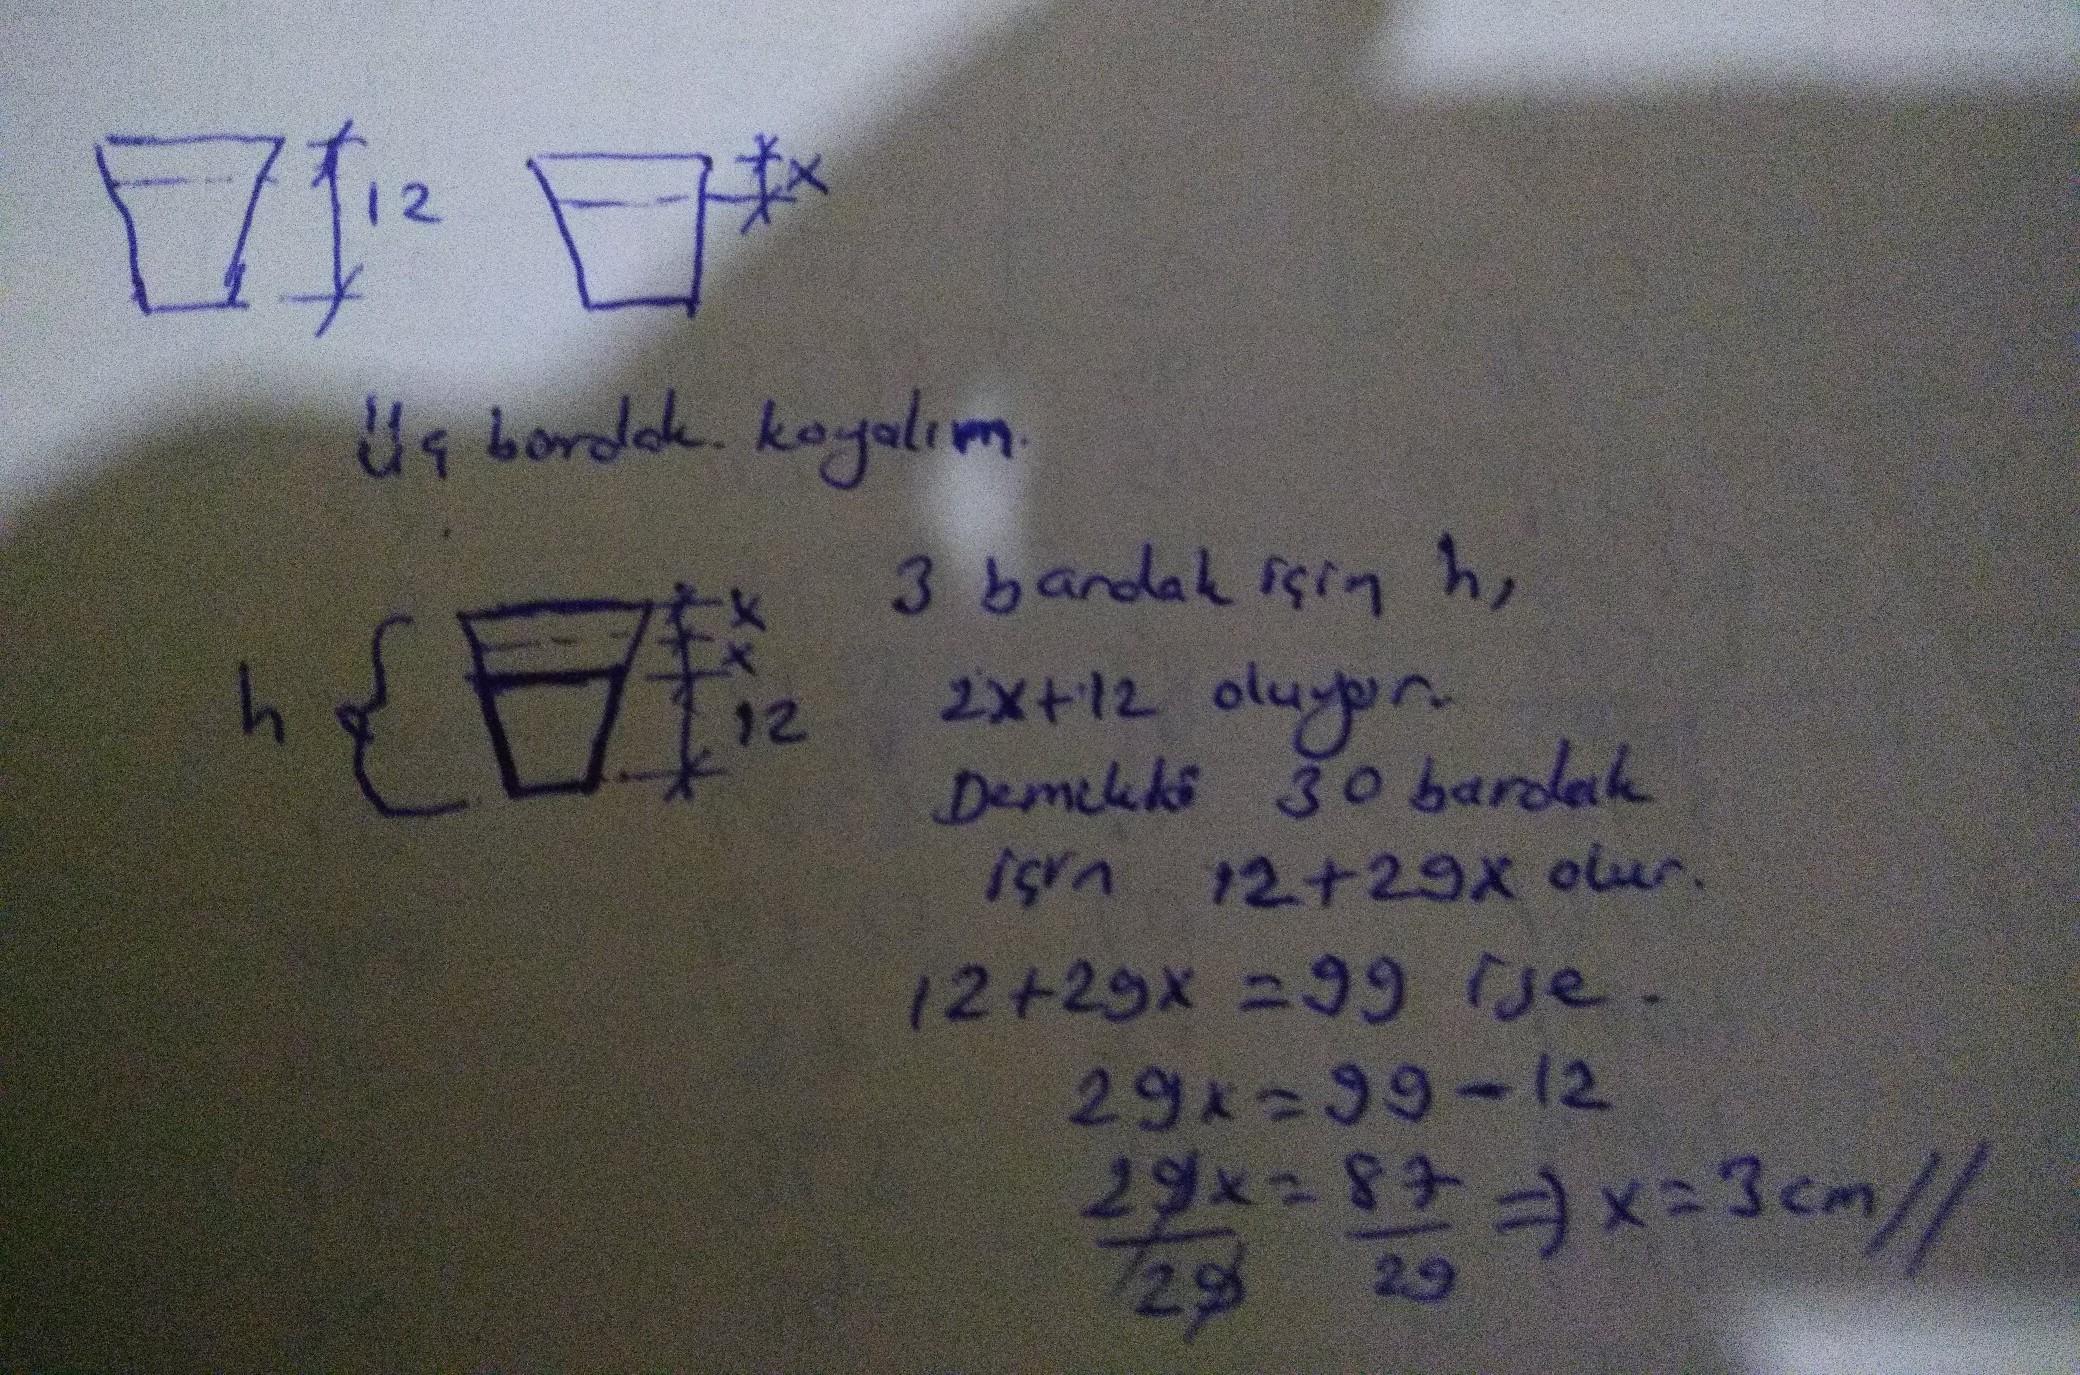 12
x
Üç bardak koyalım.
3 bardak için h,
x
x
h
12
2x+12 oluyor.
Demekki 30 bardak
için 12+29x olur.
12+29x=99 ise.
29x=99-12
29x/29 = 87/29 ⇒ x=3cm//